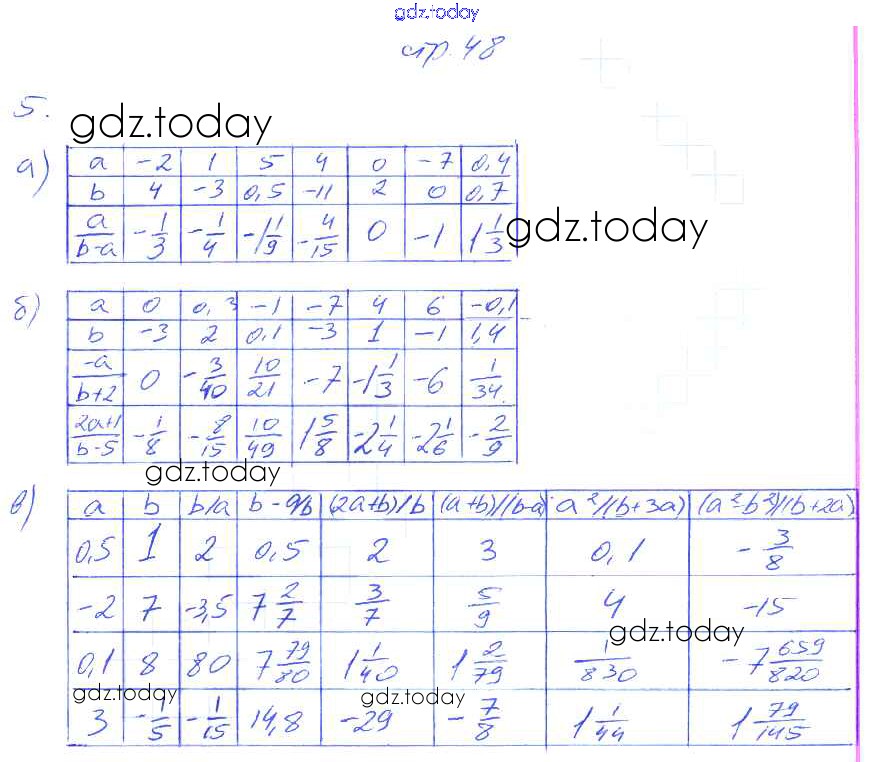 gdz.today
стр. 48
5.
gdz.today
а)
a -2 1 5 4 0 -7 0,4
b 4 -3 0,5 -11 2 0 0,7
a/(b-a) -1/3 -1/4 -1 1/9 -4/15 0 -1 1 1/3
gdz.today
б)
a 0 0,3 -1 -7 4 6 -0,1
b -3 2 0,1 -3 1 -1 1,4
-a/(b+2) 0 -3/40 10/21 -7 -1 1/3 -6 1/34
(2a+1)/(b-5) -1/8 -8/15 10/49 1 5/8 -2 1/4 -2 1/6 -2/9
gdz.today
в)
a b b/a b-a/b (2a+b)/b (a+b)/(b-a) a²/(b+3a) (a²-b²)/(b+2a)
0,5 1 2 0,5 2 3 0,1 -3/8
-2 7 -3,5 7 2/7 3/7 5/9 4 -15
gdz.today
0,1 8 80 7 79/80 1 1/40 1 2/79 1/830 -7 659/820
gdz.today
gdz.today
3 -1/5 -1/15 14,8 -29 -7/8 1 1/44 1 79/145